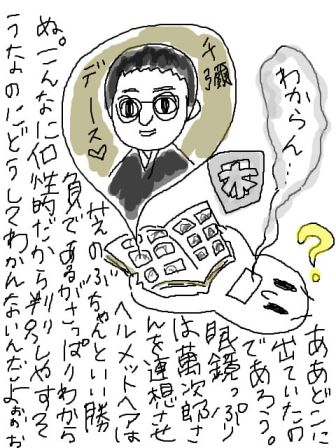 千彌
デース♡
わからん…
?
ああどこに
出ていたの
であろう。
眼鏡っぷり
は萬次郎さ
んを連想させ
ヘルメットヘアは
芝のぶちゃんといい勝
負であるがさっぱりわから
ぬ。こんなに個性的だから判別しやすそ
うなのにどうしてわかんないんだよぉぉ